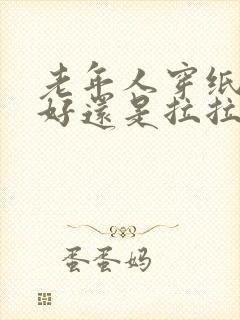 老年人穿纸
好還是拉拉
蛋蛋妈